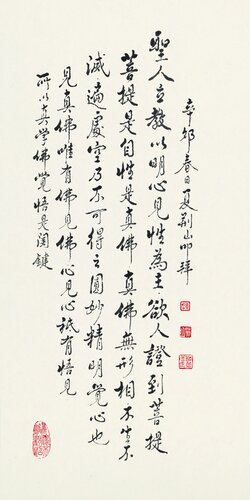 辛卯春日夏荆山叩拜
聖人立教以明心見性為主欲人證到菩提
菩提是自性是真佛真佛無形相不生不
滅遍處空乃不可得之圓妙精明覺心也
見真佛唯有佛見佛心見心祇有悟見
所以真學佛覺悟是関鍵